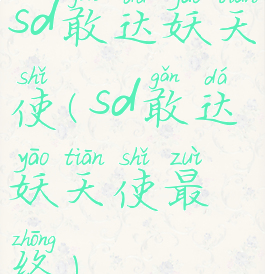 gǎn dá yāo tiān
sd敢达妖天
shǐ gǎn dá
使(sd敢达
yāo tiān shǐ zuì
妖天使最
zhōng
终)